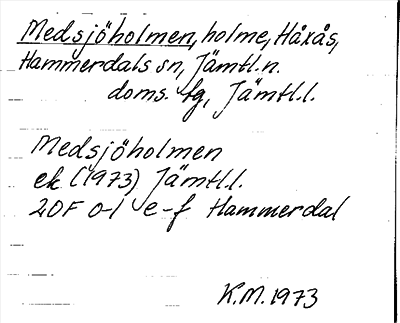 Medsjöholmen, holme, Håxås,
Hammerdals sn, Jämtl.n.
doms. tg, Jämtl.l.
Medsjöholmen
ek (1973) Jämtl.l.
20F 0-1 e-f Hammerdal
K.M. 1973